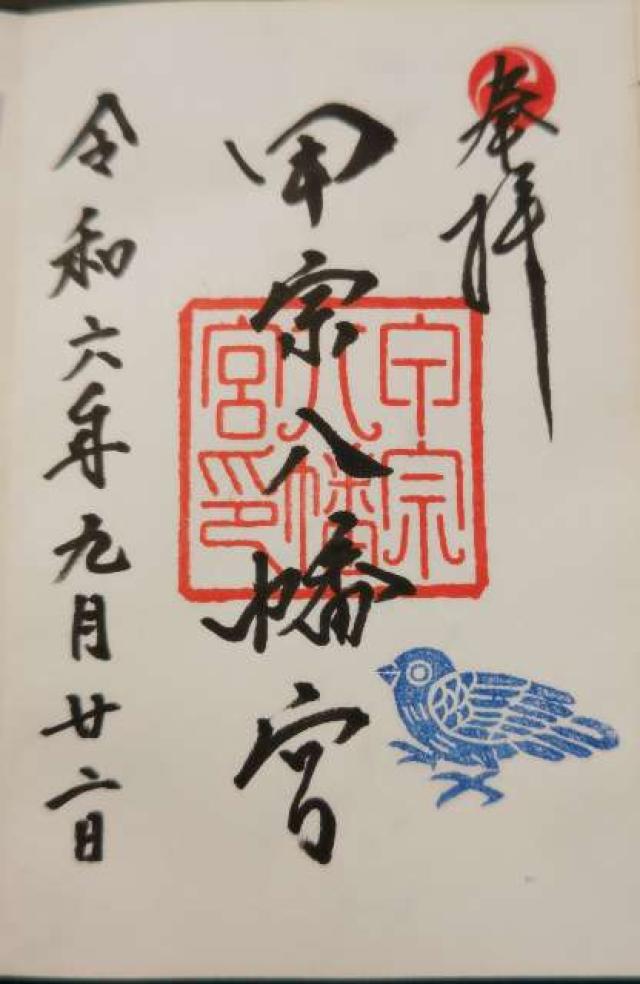 奉拝
甲宗八幡宮
甲宗
八幡
宮印
令和六年九月廿二日